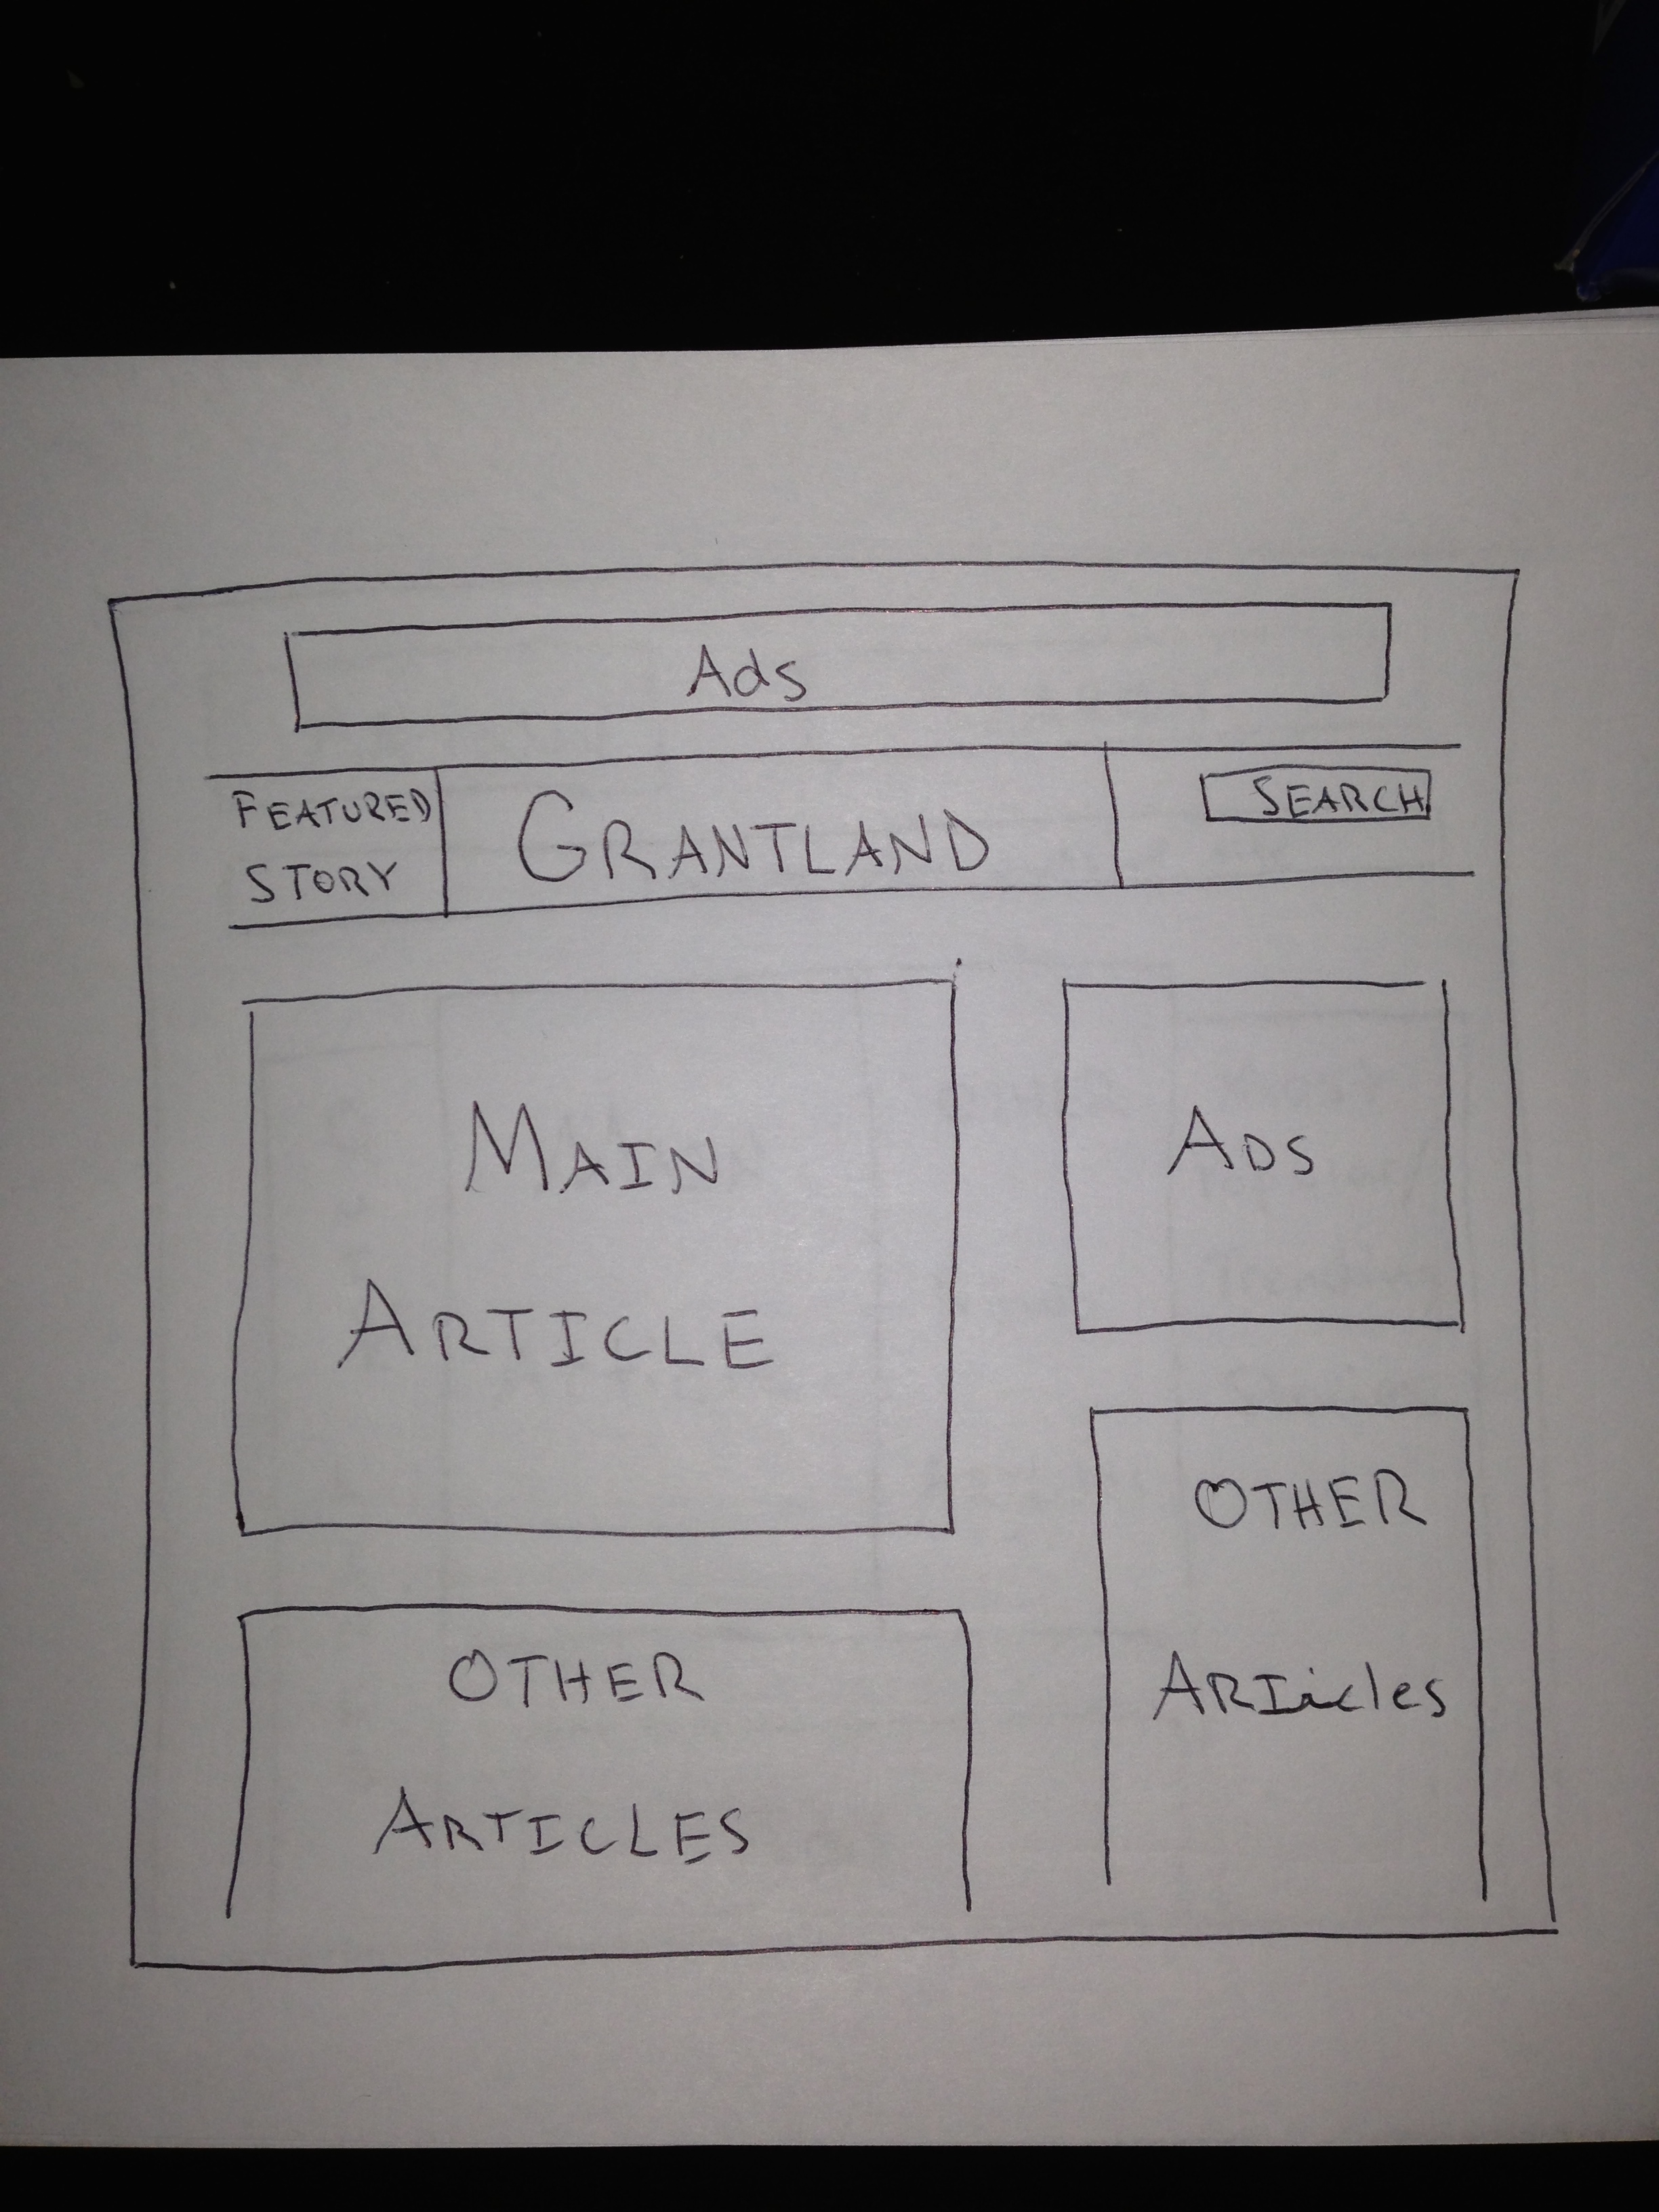 Ads
FEATURED
STORY
GRANTLAND
SEARCH
MAIN
ARTICLE
ADS
OTHER
ARTICLES
OTHER